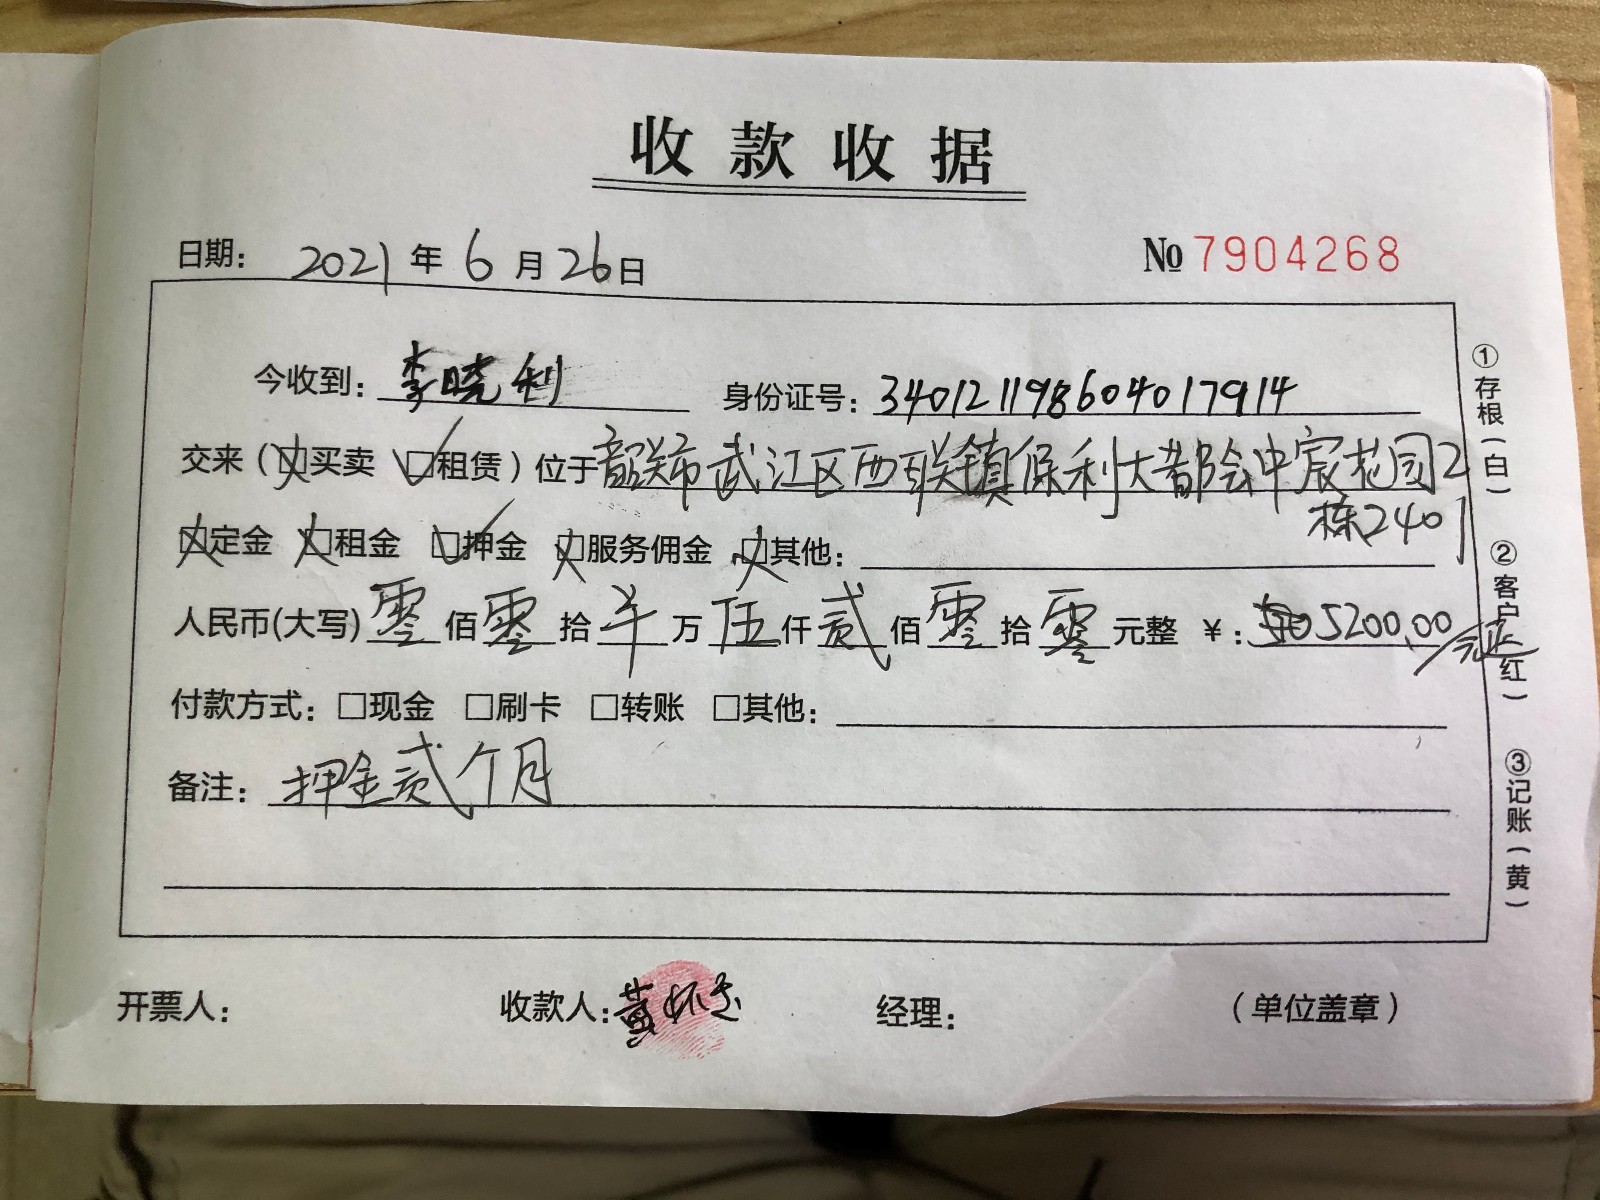 收款收据
日期：2021年6月26日 №7904268
今收到：李晓利 身份证号：340121198604017914
交来（□买卖 □租赁）位于韶关市武江区西联镇保利大都会中宸花园2
栋2401
□定金 □租金 □押金 □服务佣金 □其他：
人民币(大写)零佰零拾 万伍仟贰佰零拾零元整 ¥：5200.00元整
付款方式：□现金 □刷卡 □转账 □其他：
备注：押金贰个月
开票人： 收款人：黄怀 经理： （单位盖章）
①存根（白）
②客户（红）
③记账（黄）